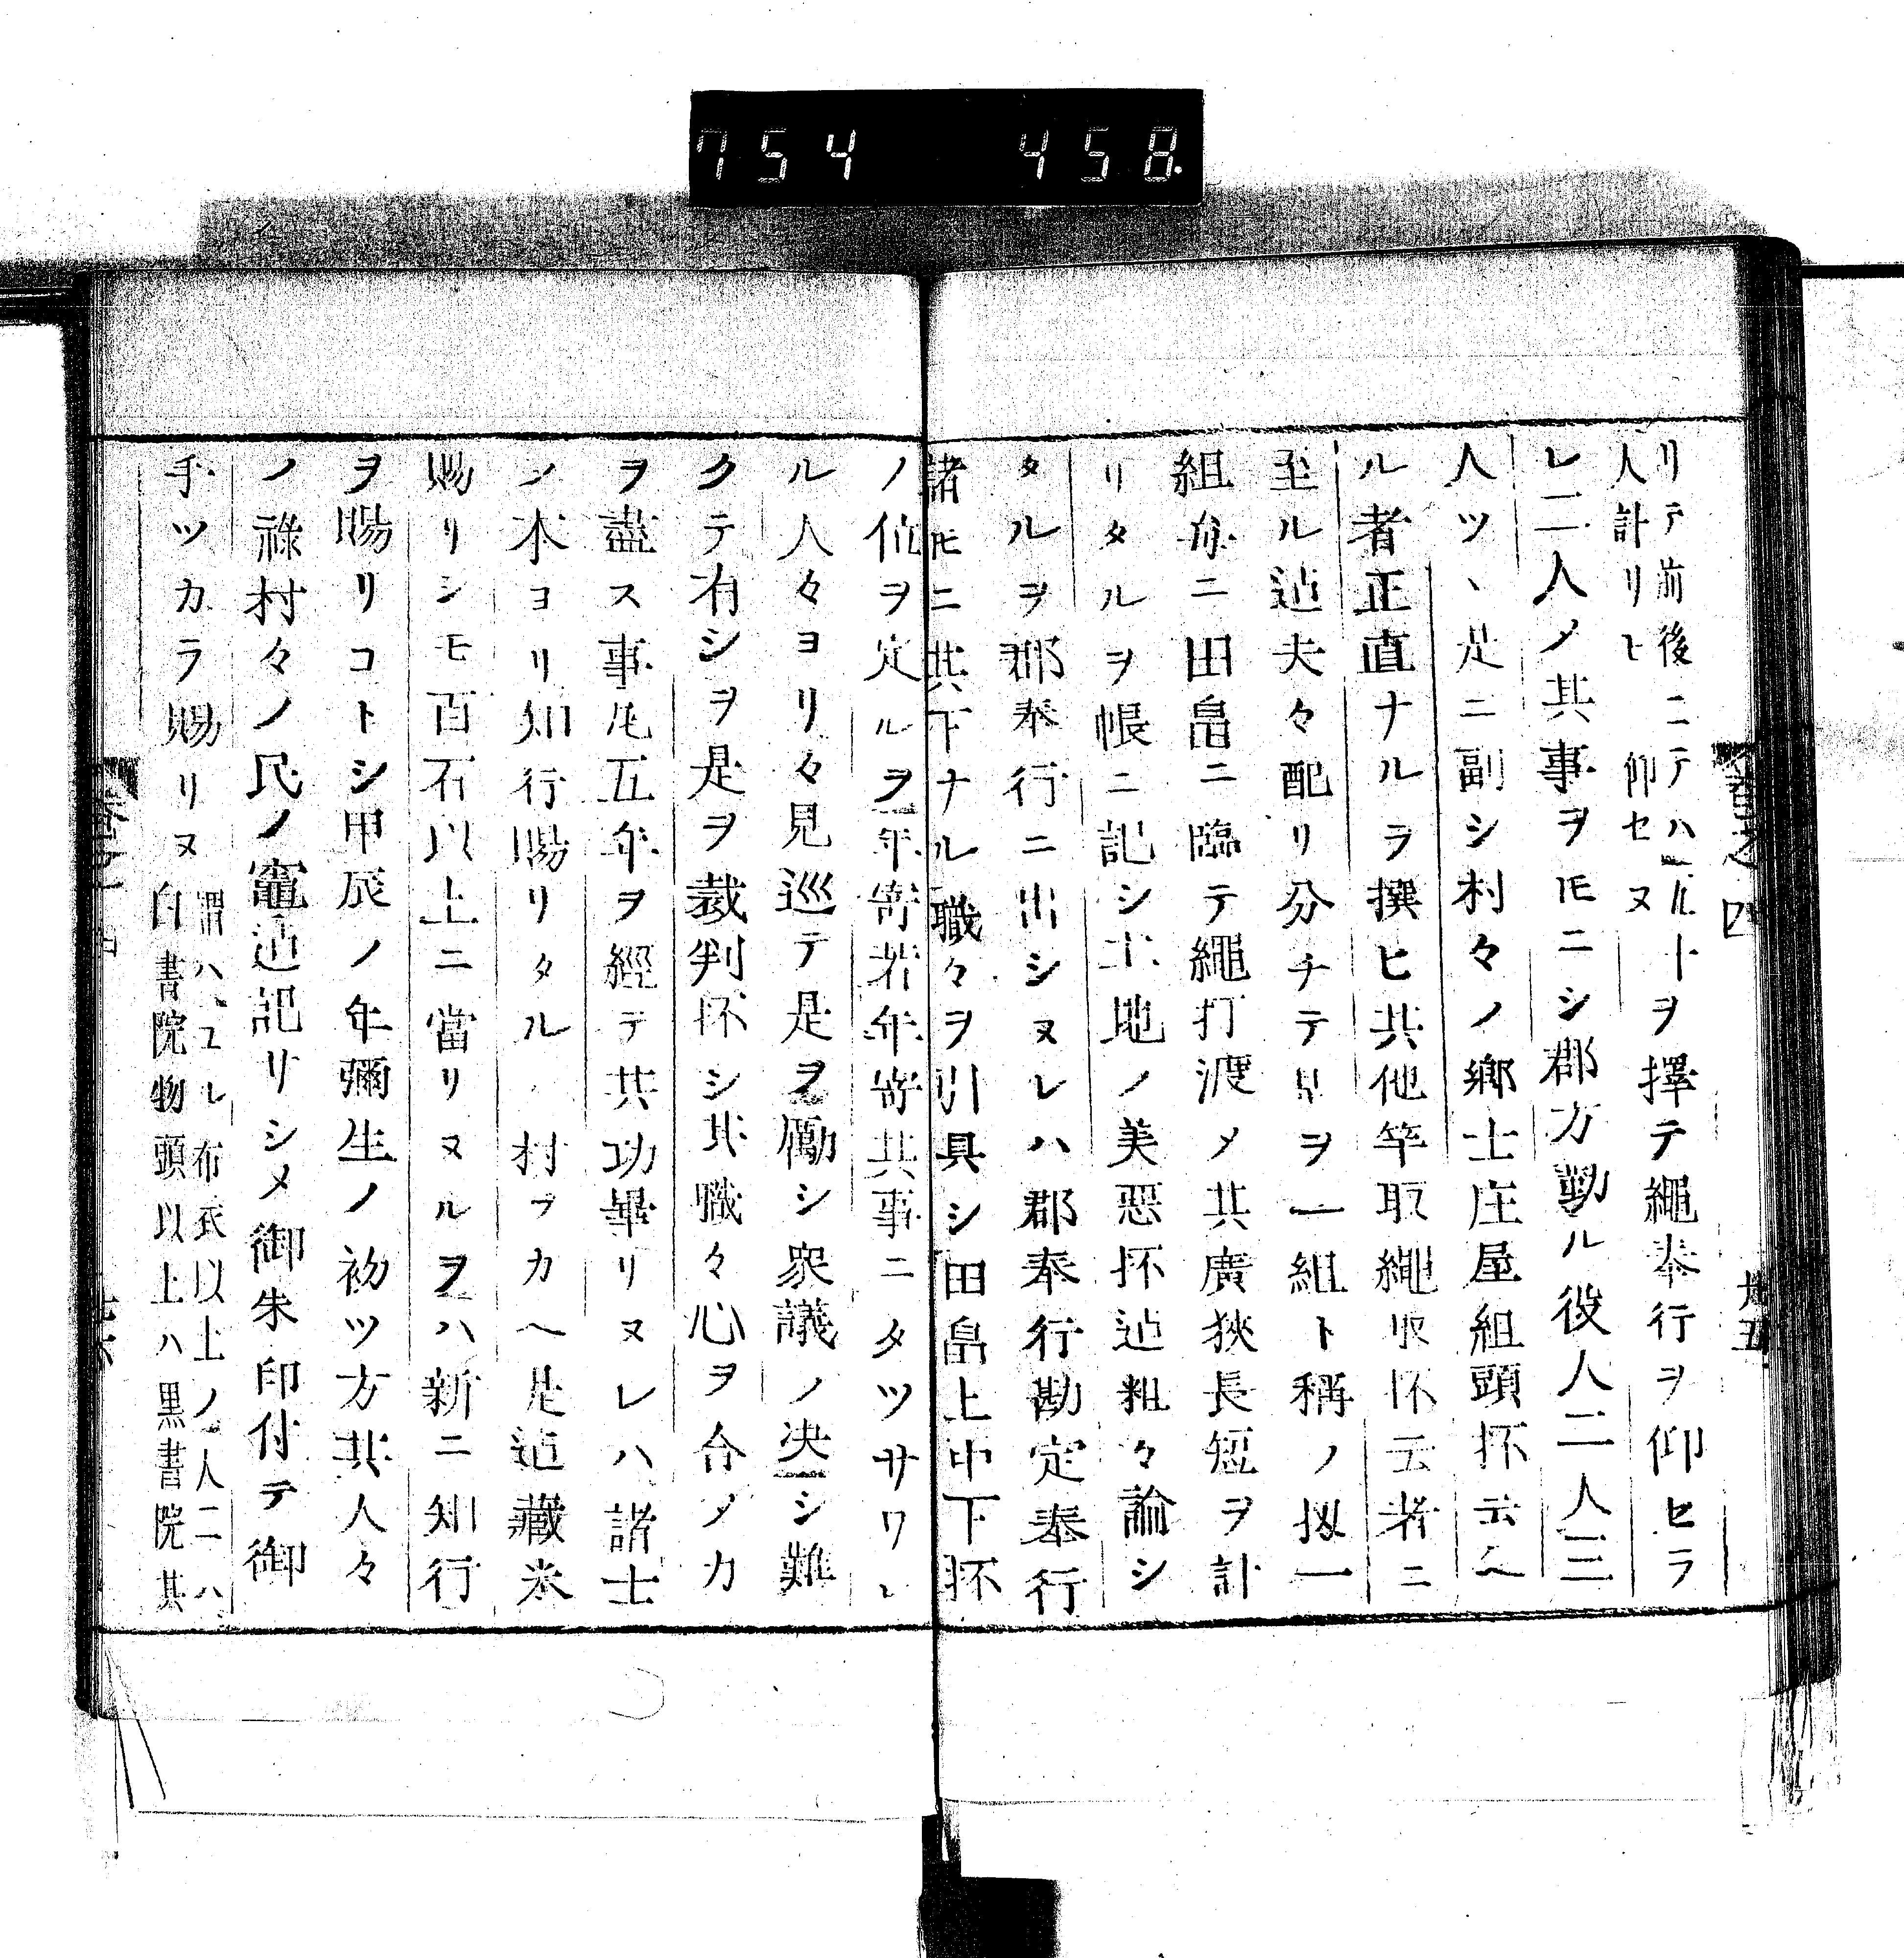 754 458
卷之四
九五
リテ前後ニテハ
人計リヒ 仰セヌ
トヲ擇テ繩奉行ヲ仰セラ
レ二人ノ其事ヲ𪜈ニシ郡方勤ル役人二人三
人ツヽ是ニ副シ村々ノ鄕士庄屋組頭抔云ヘ
ル者正直ナルラ撰ヒ其他竿取繩取抔云者ニ
至ル迠夫々配リ分チテ是ヲ一組ト稱ノ扨一
組每ニ田畠ニ臨テ繩打渡メ其廣狹長短ヲ計
リタルヲ帳ニ記シ土地ノ美惡抔迠粗々論シ
タルヲ郡奉行ニ出シヌレハ郡奉行勘定奉行
諸𪜈ニ其下ナル職々ヲ引具シ田畠上中下抔
ノ位ヲ定ルヲ年寄若年寄其事ニタツサワレ
ル人々ヨリ々見巡テ是ヲ勵シ衆議ノ決シ難
クテ有シヲ是ヲ裁判抔シ其職々心ヲ合ノカ
ヲ盡ス事凡五年ヲ經テ其功畢リヌレハ諸士
ノ本ヨリ知行賜リタル 村ブカヘ是迠藏米
賜リシモ百石以上ニ當リヌルヲハ新ニ知行
ヲ賜リコトシ甲辰ノ年彌生ノ初ツ方其人々
ノ祿村々ノ民ノ竈迠記リシメ御朱印付テ御
手ツカラ賜リヌ
謂ハユレ布衣以上ノ人ニハ
白書院物頭以上ハ黒書院其